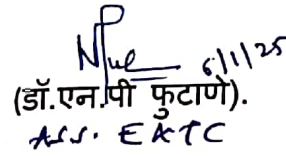 6/1/25
(डॉ.एन.पी फुटाणे).
ASS. EATC